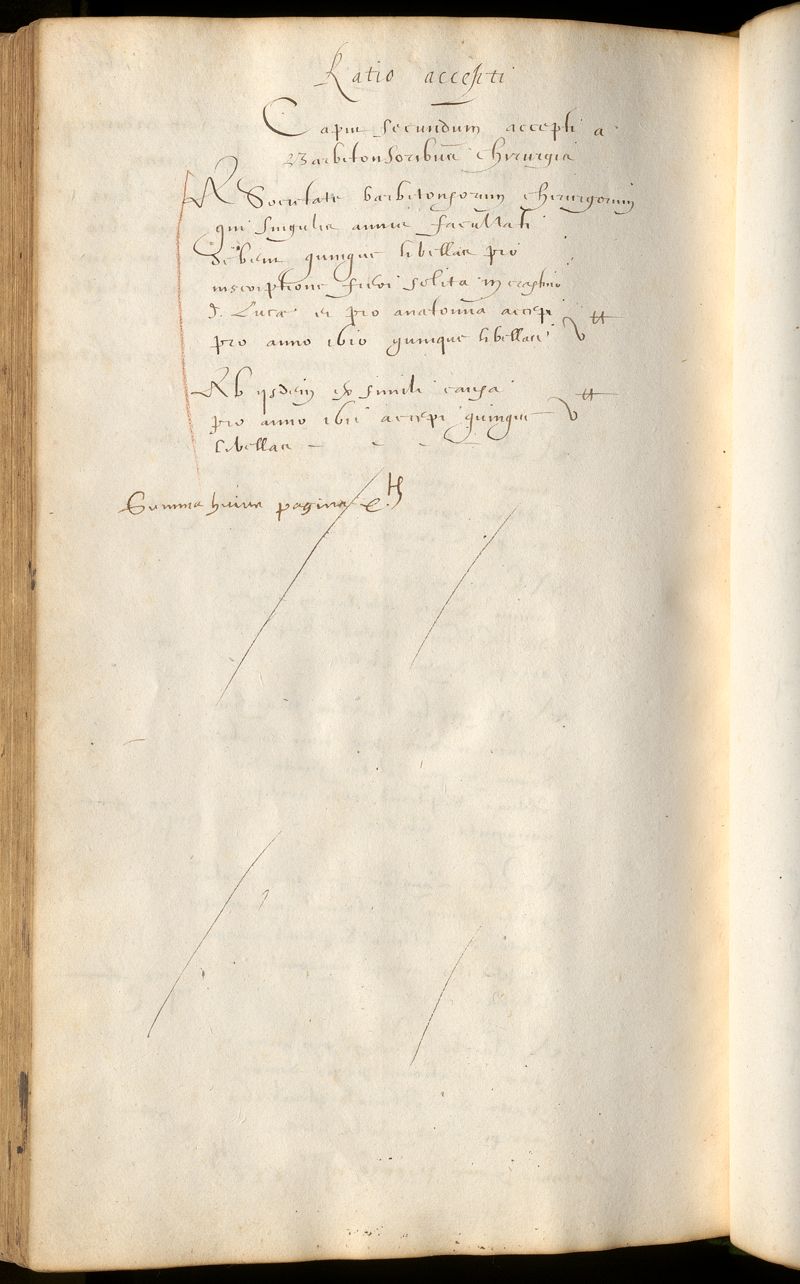 Ratio accepti
Caput secundum accepti a
Barbitonsoribus chirurgis
A Societate barbitonsorum chirurgorum
qui singulis annis facultati
debent quinque libellas pro
inscriptione fieri solita in crastino
d. Lucæ et pro anatomia accepi
pro anno 1610 quinque libellas v tt
Ab ijsdem ex simili causa
pro anno 1611 accepi quinque v tt
libellas
Summa huius paginæ x. tt